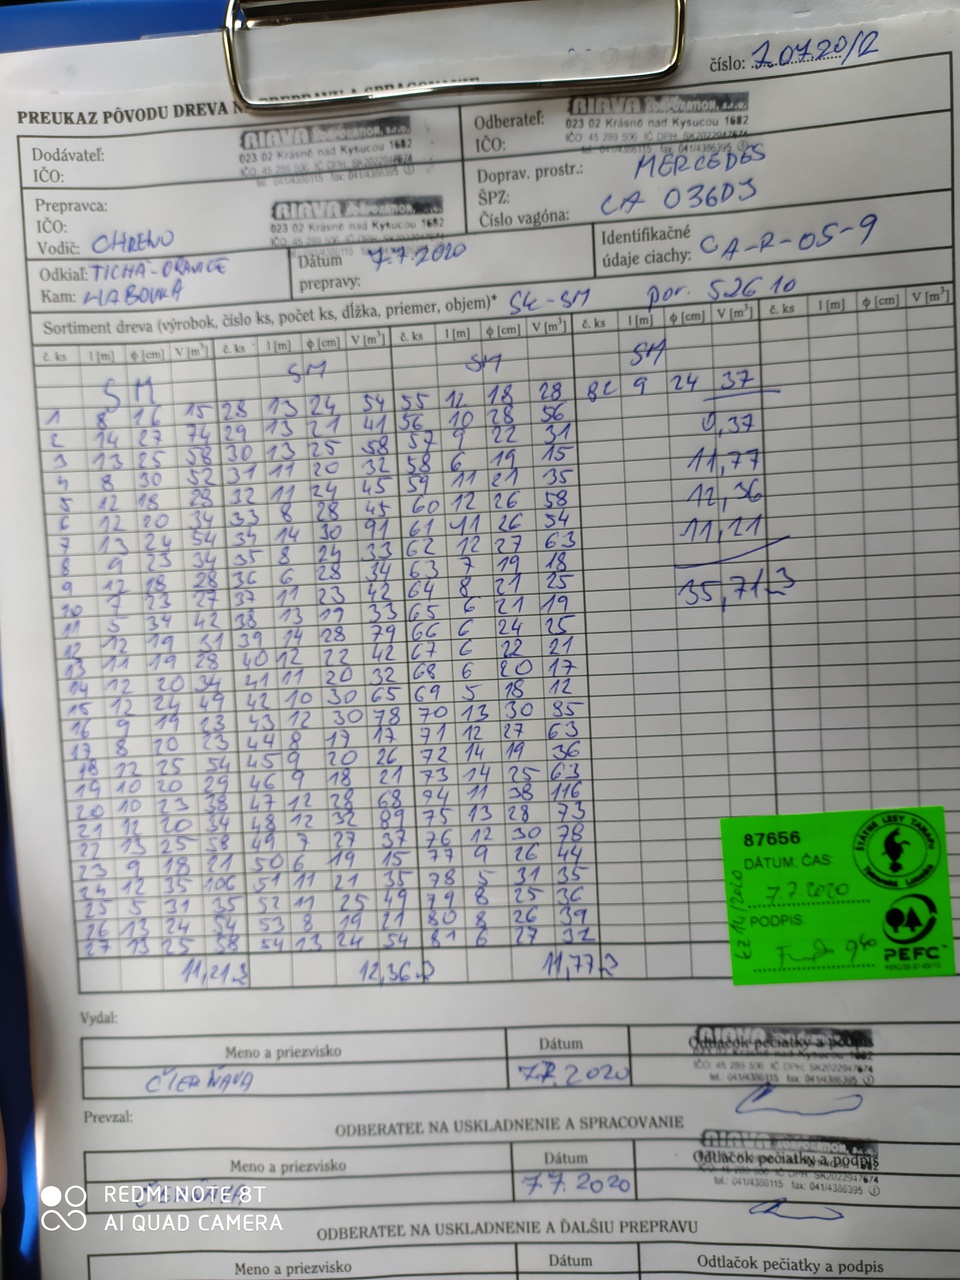 číslo: 7.07.20/2
PREUKAZ PÔVODU DREVA
Dodávateľ:
IČO:
RIAVA CORPORATION, s.r.o.
023 02 Krásno nad Kysucou 1682
IČO 45 289 506 IČ DPH, SK2022947674
tel.: 041/4386115 fax: 041/4386395
Odberateľ:
IČO:
RIAVA CORPORATION, s.r.o.
023 02 Krásno nad Kysucou 1682
Prepravca:
IČO:
Vodič:
RIAVA CORPORATION, s.r.o.
023 02 Krásno nad Kysucou 1682
Doprav. prostr.: MERCEDES
ŠPZ: CA 036DJ
Číslo vagóna:
Odkiaľ: TICHÁ-ORAVICE
Kam: HABOVKA
Dátum prepravy: 7.7.2020
Identifikačné údaje ciachy: CA-R-05-9
Sortiment dreva (výrobok, číslo ks, počet ks, dĺžka, priemer, objem)* SK-SM por. 52610
č. ks l [m] ϕ [cm] V [m³] č. ks l [m] ϕ [cm] V [m³] č. ks l [m] ϕ [cm] V [m³] č. ks l [m] ϕ [cm] V [m³] č. ks l [m] ϕ [cm] V [m³]
SM SM SM SM
1 8 16 15 28 13 24 54 55 12 18 28 82 9 24 37
2 14 27 74 29 13 21 41 56 10 28 56
3 13 25 58 30 13 25 58 57 9 22 31 0,37
4 8 30 52 31 11 20 32 58 6 19 15 11,77
5 12 18 28 32 11 24 45 59 11 21 35 12,36
6 12 20 34 33 8 28 45 60 12 26 58 11,21
7 13 24 54 34 14 30 91 61 11 26 54
8 9 23 34 35 8 24 33 62 12 27 63
9 12 18 28 36 6 28 34 63 7 19 18 35,71
10 7 23 27 37 11 23 42 64 8 21 25
11 5 34 42 38 13 19 33 65 6 21 19
12 12 19 31 39 14 28 79 66 6 24 25
13 11 19 28 40 12 22 42 67 6 22 21
14 12 20 34 41 11 20 32 68 6 20 17
15 12 24 49 42 10 30 65 69 5 18 12
16 9 19 23 43 12 30 78 70 13 30 85
17 8 20 23 44 8 17 17 71 12 27 63
18 12 25 54 45 9 20 26 72 14 19 36
19 10 20 29 46 9 18 21 73 14 25 63
20 10 23 38 47 12 28 68 74 11 38 116
21 12 20 34 48 12 32 89 75 13 28 73
22 13 25 58 49 7 27 37 76 12 30 78
23 9 18 21 50 6 19 15 77 9 26 44
24 12 35 106 51 11 21 35 78 5 31 35
25 5 31 35 52 11 25 49 79 8 25 36
26 13 24 54 53 8 19 21 80 8 26 39
27 13 25 58 54 13 24 54 81 6 27 32
11,21 12,36 11,77
87656
DÁTUM: ČAS:
7.7.2020
PODPIS:
9 40
ŠTÁTNE LESY TANAPU
PEFC
Vydal:
Meno a priezvisko Dátum Odtlačok pečiatky a podpis
7.7.2020
Prevzal:
ODBERATEĽ NA USKLADNENIE A SPRACOVANIE
Meno a priezvisko Dátum Odtlačok pečiatky a podpis
7.7.2020
ODBERATEĽ NA USKLADNENIE A ĎALŠIU PREPRAVU
Meno a priezvisko Dátum Odtlačok pečiatky a podpis
REDMI NOTE 8T
AI QUAD CAMERA